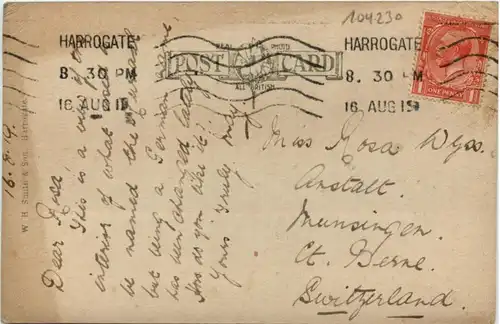 104230
HARROGATE
8. 30 PM
16 AUG 19
HARROGATE
8. 30 PM
16 AUG 19
REAL PHOTO
POST CARD
ALL BRITISH
ONE PENNY
W. H. Smith & Son, Harrogate.
16.8.19.
Dear Rosa
This is a view of the
interior of what used to
be named the Kursaal
but being a German name
has been changed lately.
How do you like it?
Yours truly
Miss Rosa Wyss.
Anstalt.
Munsingen.
Ct. Berne.
Switzerland.